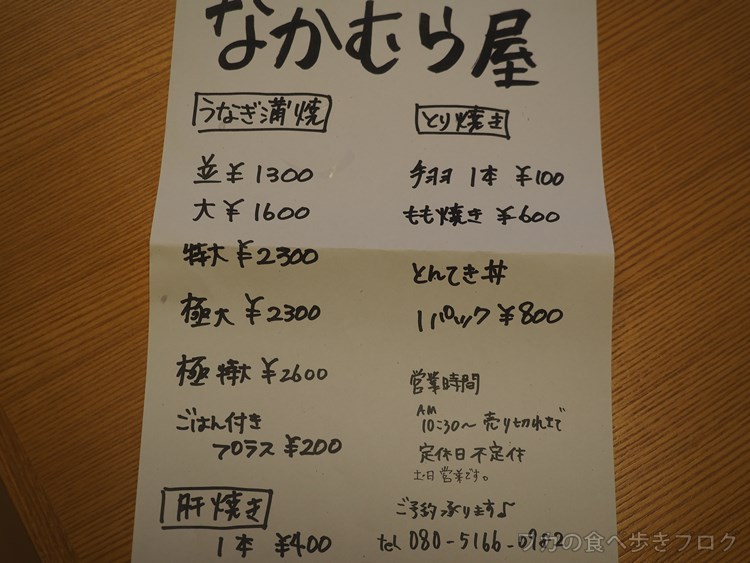 なかむら屋
うなぎ蒲焼
並 ¥1300
大 ¥1600
特大 ¥2300
極大 ¥2300
極特大 ¥2600
ごはん付き
プラス ¥200
肝焼き
1本 ¥400
とり焼き
手羽 1本 ¥100
もも焼き ¥600
とんてき丼
1パック ¥800
営業時間
AM
10:30〜 売り切れまで
定休日 不定休
土日営業です。
ご予約承ります♪
tel 080-5166-
の食べ歩きブログ